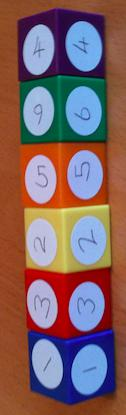 4 4
9 6
5 5
2 2
3 3
1 1